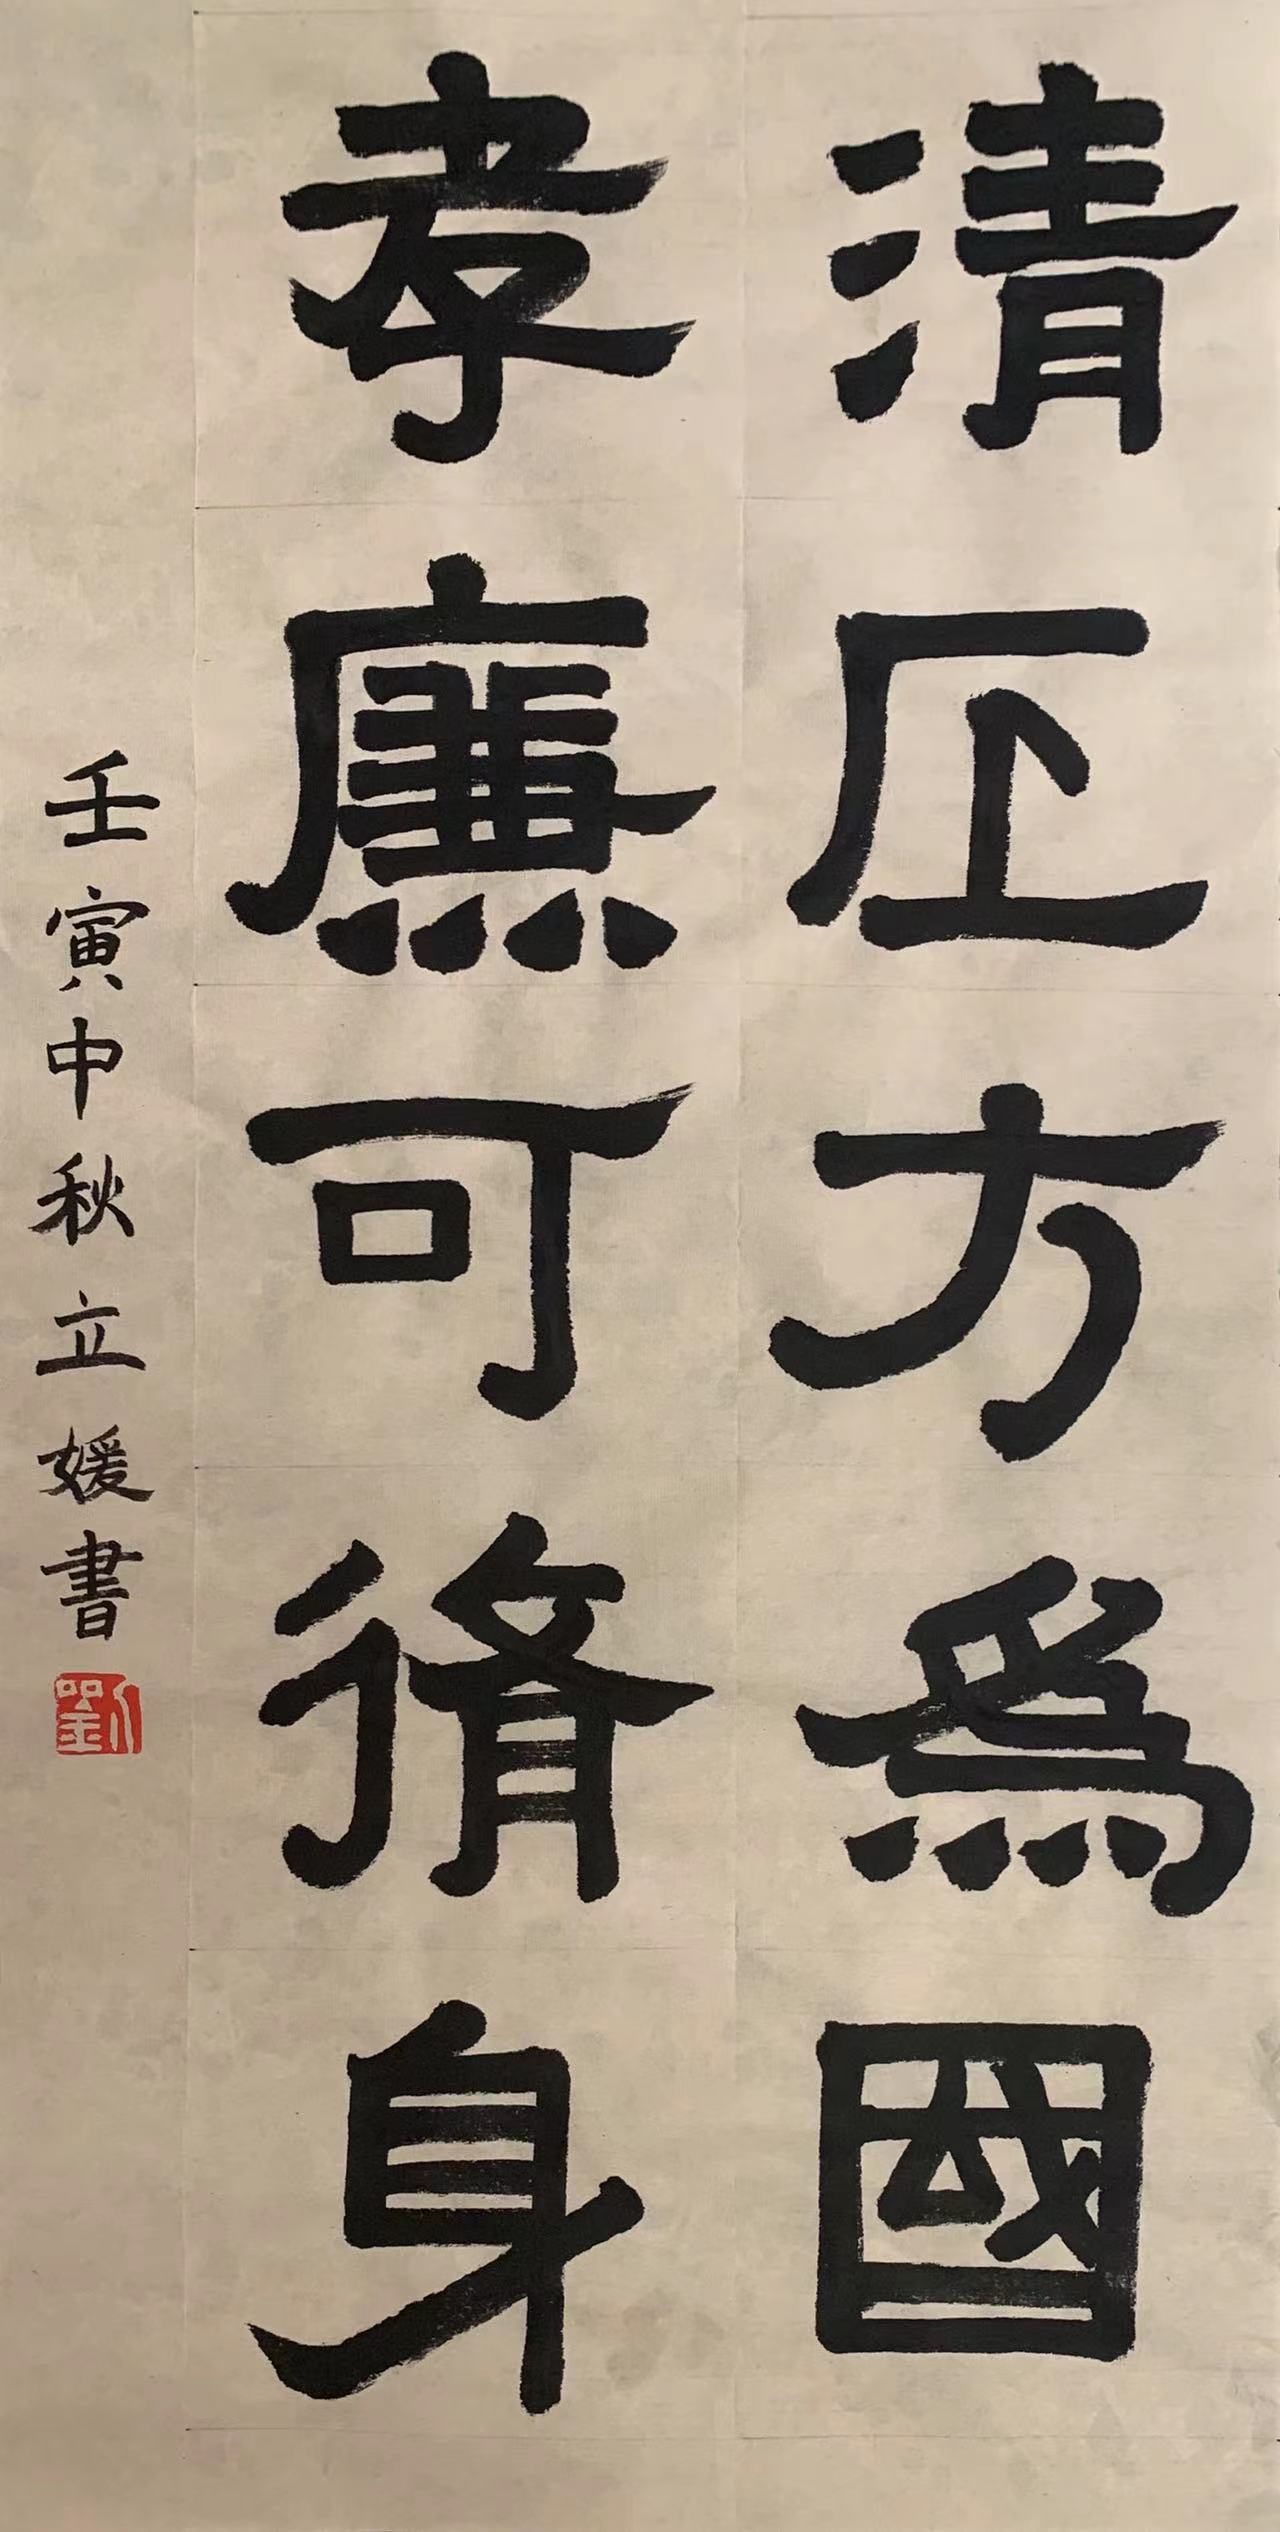 清正方為國
孝廉可脩身
壬寅中秋立媛書
劉